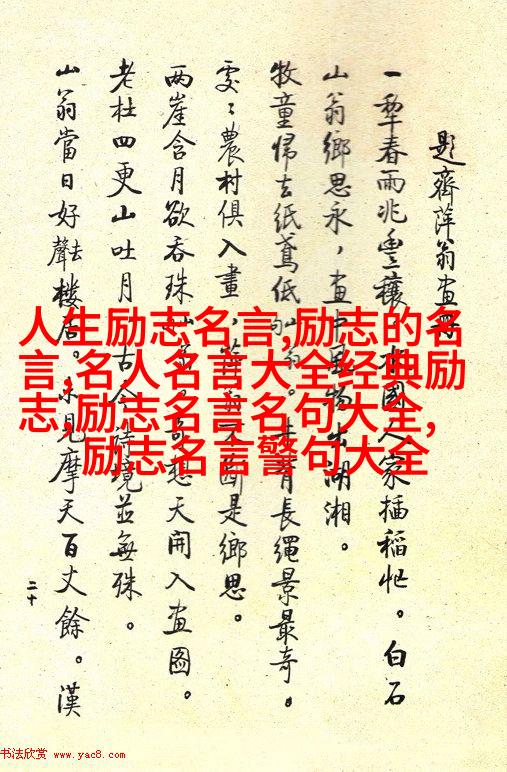 題齊萍翁畫冊
一犁春雨兆豐穰 國人家插稻忙。白石
山翁鄉思永，畫中風物出湖湘。
牧童歸去紙鳶低 長繩景最奇。
處〻農村俱入畫，萍翁不斷是鄉思。
兩崖含月欲吞珠 奇想天開入畫圖。
老杜四更山吐月 古今詩境並無殊。
山翁當日好去聲樓居。未見摩天百丈餘。漢
二十
人生励志名言,励志的名
言,名人名言大全经典励
志,励志名言名句大全,
励志名言警句大全
书法欣赏 www.yac8.com